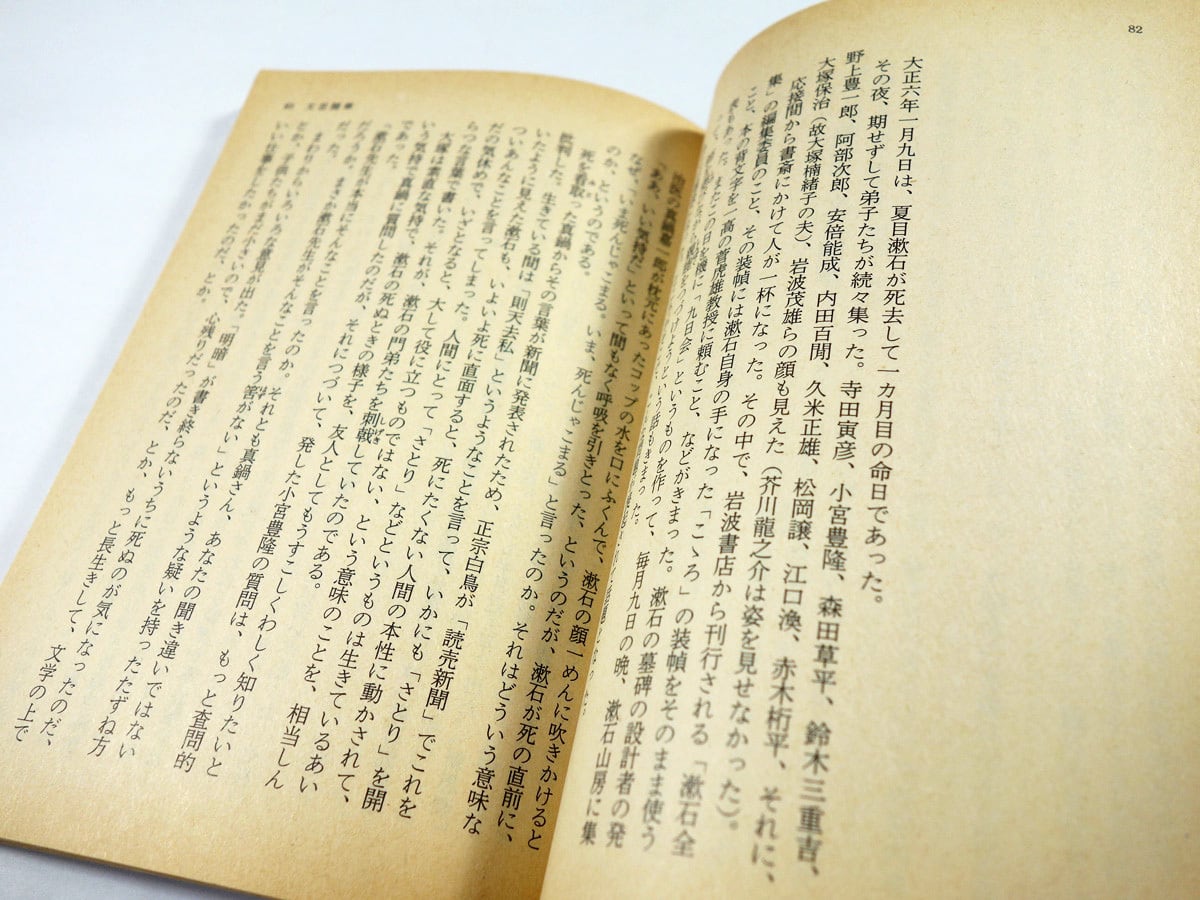 82
大正六年一月九日は、夏目漱石が死去して一カ月目の命日であった。
その夜、期せずして弟子たちが続々集った。寺田寅彦、小宮豊隆、森田草平、鈴木三重吉、
野上豊一郎、阿部次郎、安倍能成、内田百閒、久米正雄、松岡譲、江口渙、赤木桁平、それに、
大塚保治（故大塚楠緒子の夫）、岩波茂雄らの顔も見えた（芥川龍之介は姿を見せなかった）。
応接間から書斎にかけて人が一杯になった。その中で、岩波書店から刊行される「漱石全
集」の編集委員のこと、その装幀には漱石自身の手になった「こゝろ」の装幀をそのまま使う
こと、本の背文字を一高の菅虎雄教授に頼むこと、などがきまった。漱石の墓碑の設計者の発
表もあった。またこの日を機に「九日会」というものを作って、毎月九日の晩、漱石山房に集
という話もきまった。
治医の真鍋嘉一郎が枕元にあったコップの水を口にふくんで、漱石の顔一めんに吹きかけると
「ああ、いい気持だ」といって間もなく呼吸を引きとった、というのだが、漱石が死の直前に、
なぜ、「いま死んじゃこまる。いま、死んじゃこまる」と言ったのか。それはどういう意味な
のか、というのである。
死を看取った真鍋からその言葉が新聞に発表されたため、正宗白鳥が「読売新聞」でこれを
批判した。生きている間は「則天去私」というようなことを言って、いかにも「さとり」を開
いたように見えた漱石も、いよいよ死に直面すると、死にたくない人間の本性に動かされて、
ついあんなことを言ってしまった。人間にとって「さとり」などというものは生きているあい
だの気休めで、いざとなると、大して役に立つものではない、という意味のことを、相当しん
らつな言葉で書いた。それが、漱石の門弟たちを刺戟していたのである。
大塚は素直な気持で、漱石の死ぬときの様子を、友人としてもうすこしくわしく知りたいと
いう気持で真鍋に質問したのだが、それにつづいて、発した小宮豊隆の質問は、もっと査問的
であった。
「漱石先生が本当にそんなことを言ったのか。それとも真鍋さん、あなたの聞き違いではない
だろうか。まさか漱石先生がそんなことを言う筈がない」というような疑いを持ったたずね方
だった。
まわりからもいろいろな意見が出た。「明暗」が書き終らないうちに死ぬのが気になったのだ、
とか、子供たちがまだ小さいので、心残りだったのだ、とか、もっと長生きして、文学の上で
いい仕事をしたかったのだ、とか。